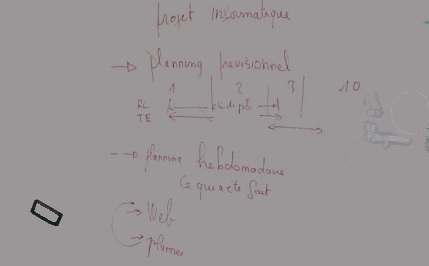 projet informatique
planning previsionnel
1 2 3 10
RC
TE
planning hebdomadaire
ce qui a été fait
Web